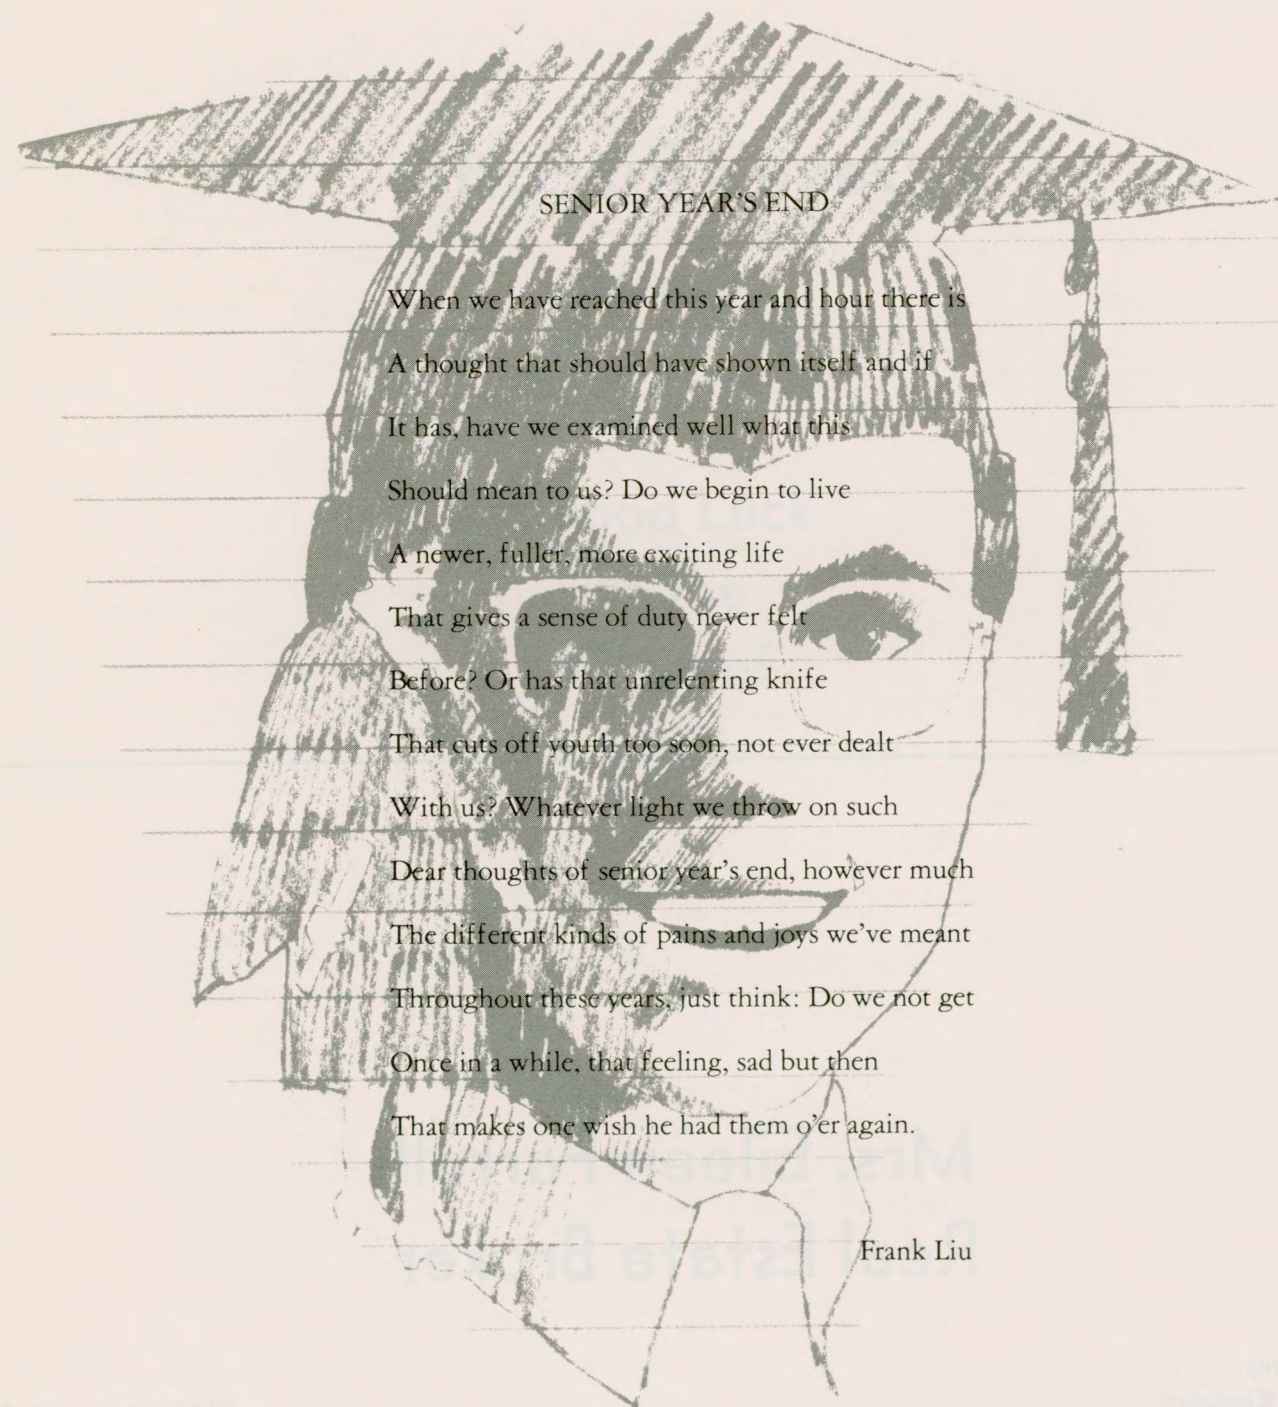 SENIOR YEAR'S END
When we have reached this year and hour there is
A thought that should have shown itself and if
It has, have we examined well what this
Should mean to us? Do we begin to live
A newer, fuller, more exciting life
That gives a sense of duty never felt
Before? Or has that unrelenting knife
That cuts off youth too soon, not ever dealt
With us? Whatever light we throw on such
Dear thoughts of senior year's end, however much
The different kinds of pains and joys we've meant
Throughout these years, just think: Do we not get
Once in a while, that feeling, sad but then
That makes one wish he had them o'er again.
Frank Liu